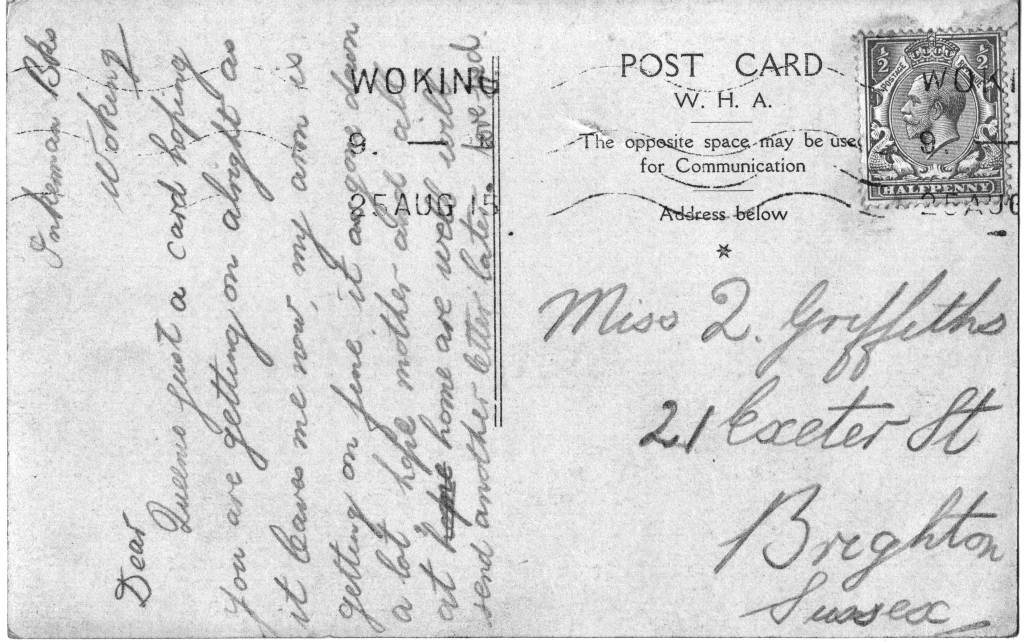 Inkeman Bks
Woking
Dear
Queenie Just a card hoping
you are getting on alright as
it leaves me now, my arm is
getting on fine it as gone down
a lot hope mother and all
at hope home are well will
send another letter later love
POST CARD
W. H. A.
The opposite space may be used
for Communication
Address below
WOKING
9. —
25 AUG 15
WOKI
9 —
25 AUG
POSTAGE
½ ½
HALFPENNY
Miss Q. Griffiths
21 Exeter St
Brighton
Sussex